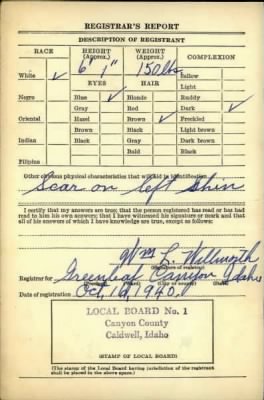 REGISTRAR'S REPORT
DESCRIPTION OF REGISTRANT
RACE HEIGHT (Approx.) WEIGHT (Approx.) COMPLEXION
6' 1" 150 lbs
White ✓ EYES HAIR Sallow
Light
Negro Blue ✓ Blonde Ruddy
Gray Red Dark ✓
Oriental Hazel Brown ✓ Freckled
Brown Black Light brown
Indian Black Gray Dark brown
Bald Black
Filipino
Other obvious physical characteristics that will aid in identification
Scar on left Shin
I certify that my answers are true; that the person registered has read or has had
read to him his own answers; that I have witnessed his signature or mark and that
all of his answers of which I have knowledge are true, except as follows:
Wm L.
(Signature of registrar)
Registrar for Greenleaf Canyon Idaho
(Precinct) (City or county) (State)
Date of registration Oct. 16, 1940.
LOCAL BOARD No. 1
Canyon County
Caldwell, Idaho
(STAMP OF LOCAL BOARD)
(The stamp of the Local Board having jurisdiction of the registrant
shall be placed in the above space.)